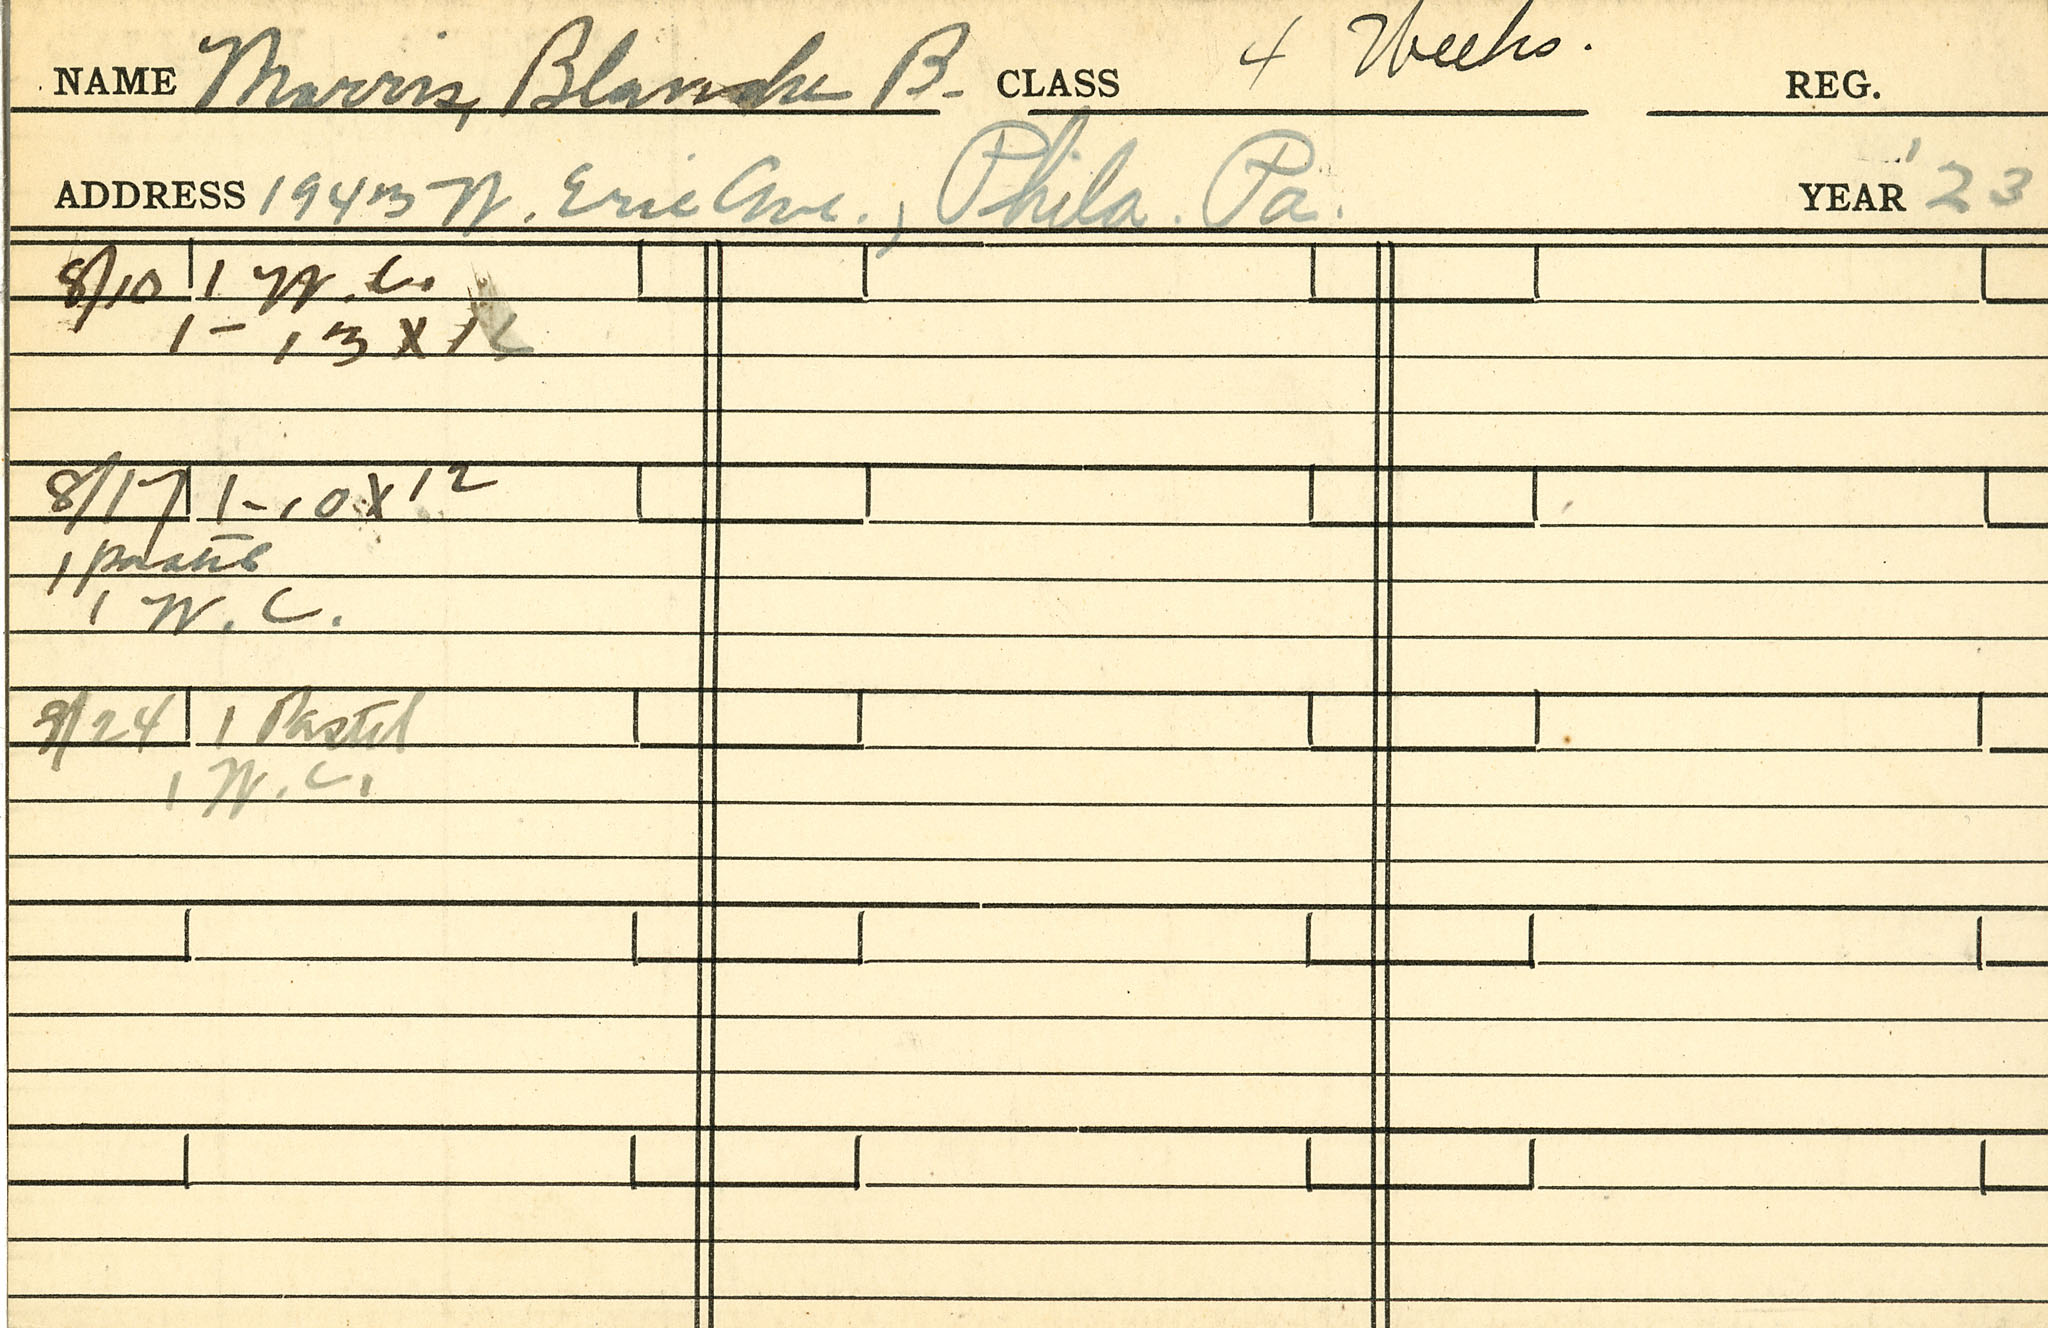 NAME Morris, Blanche B. CLASS 4 Weeks. REG.
ADDRESS 1943 W. Erie Ave., Phila. Pa. YEAR '23
8/10 1 W.C.
1 - 13 X
8/17 1 - 10 X 12
1 pastel
1 W.C.
8/24 1 Pastel
1 W.C.